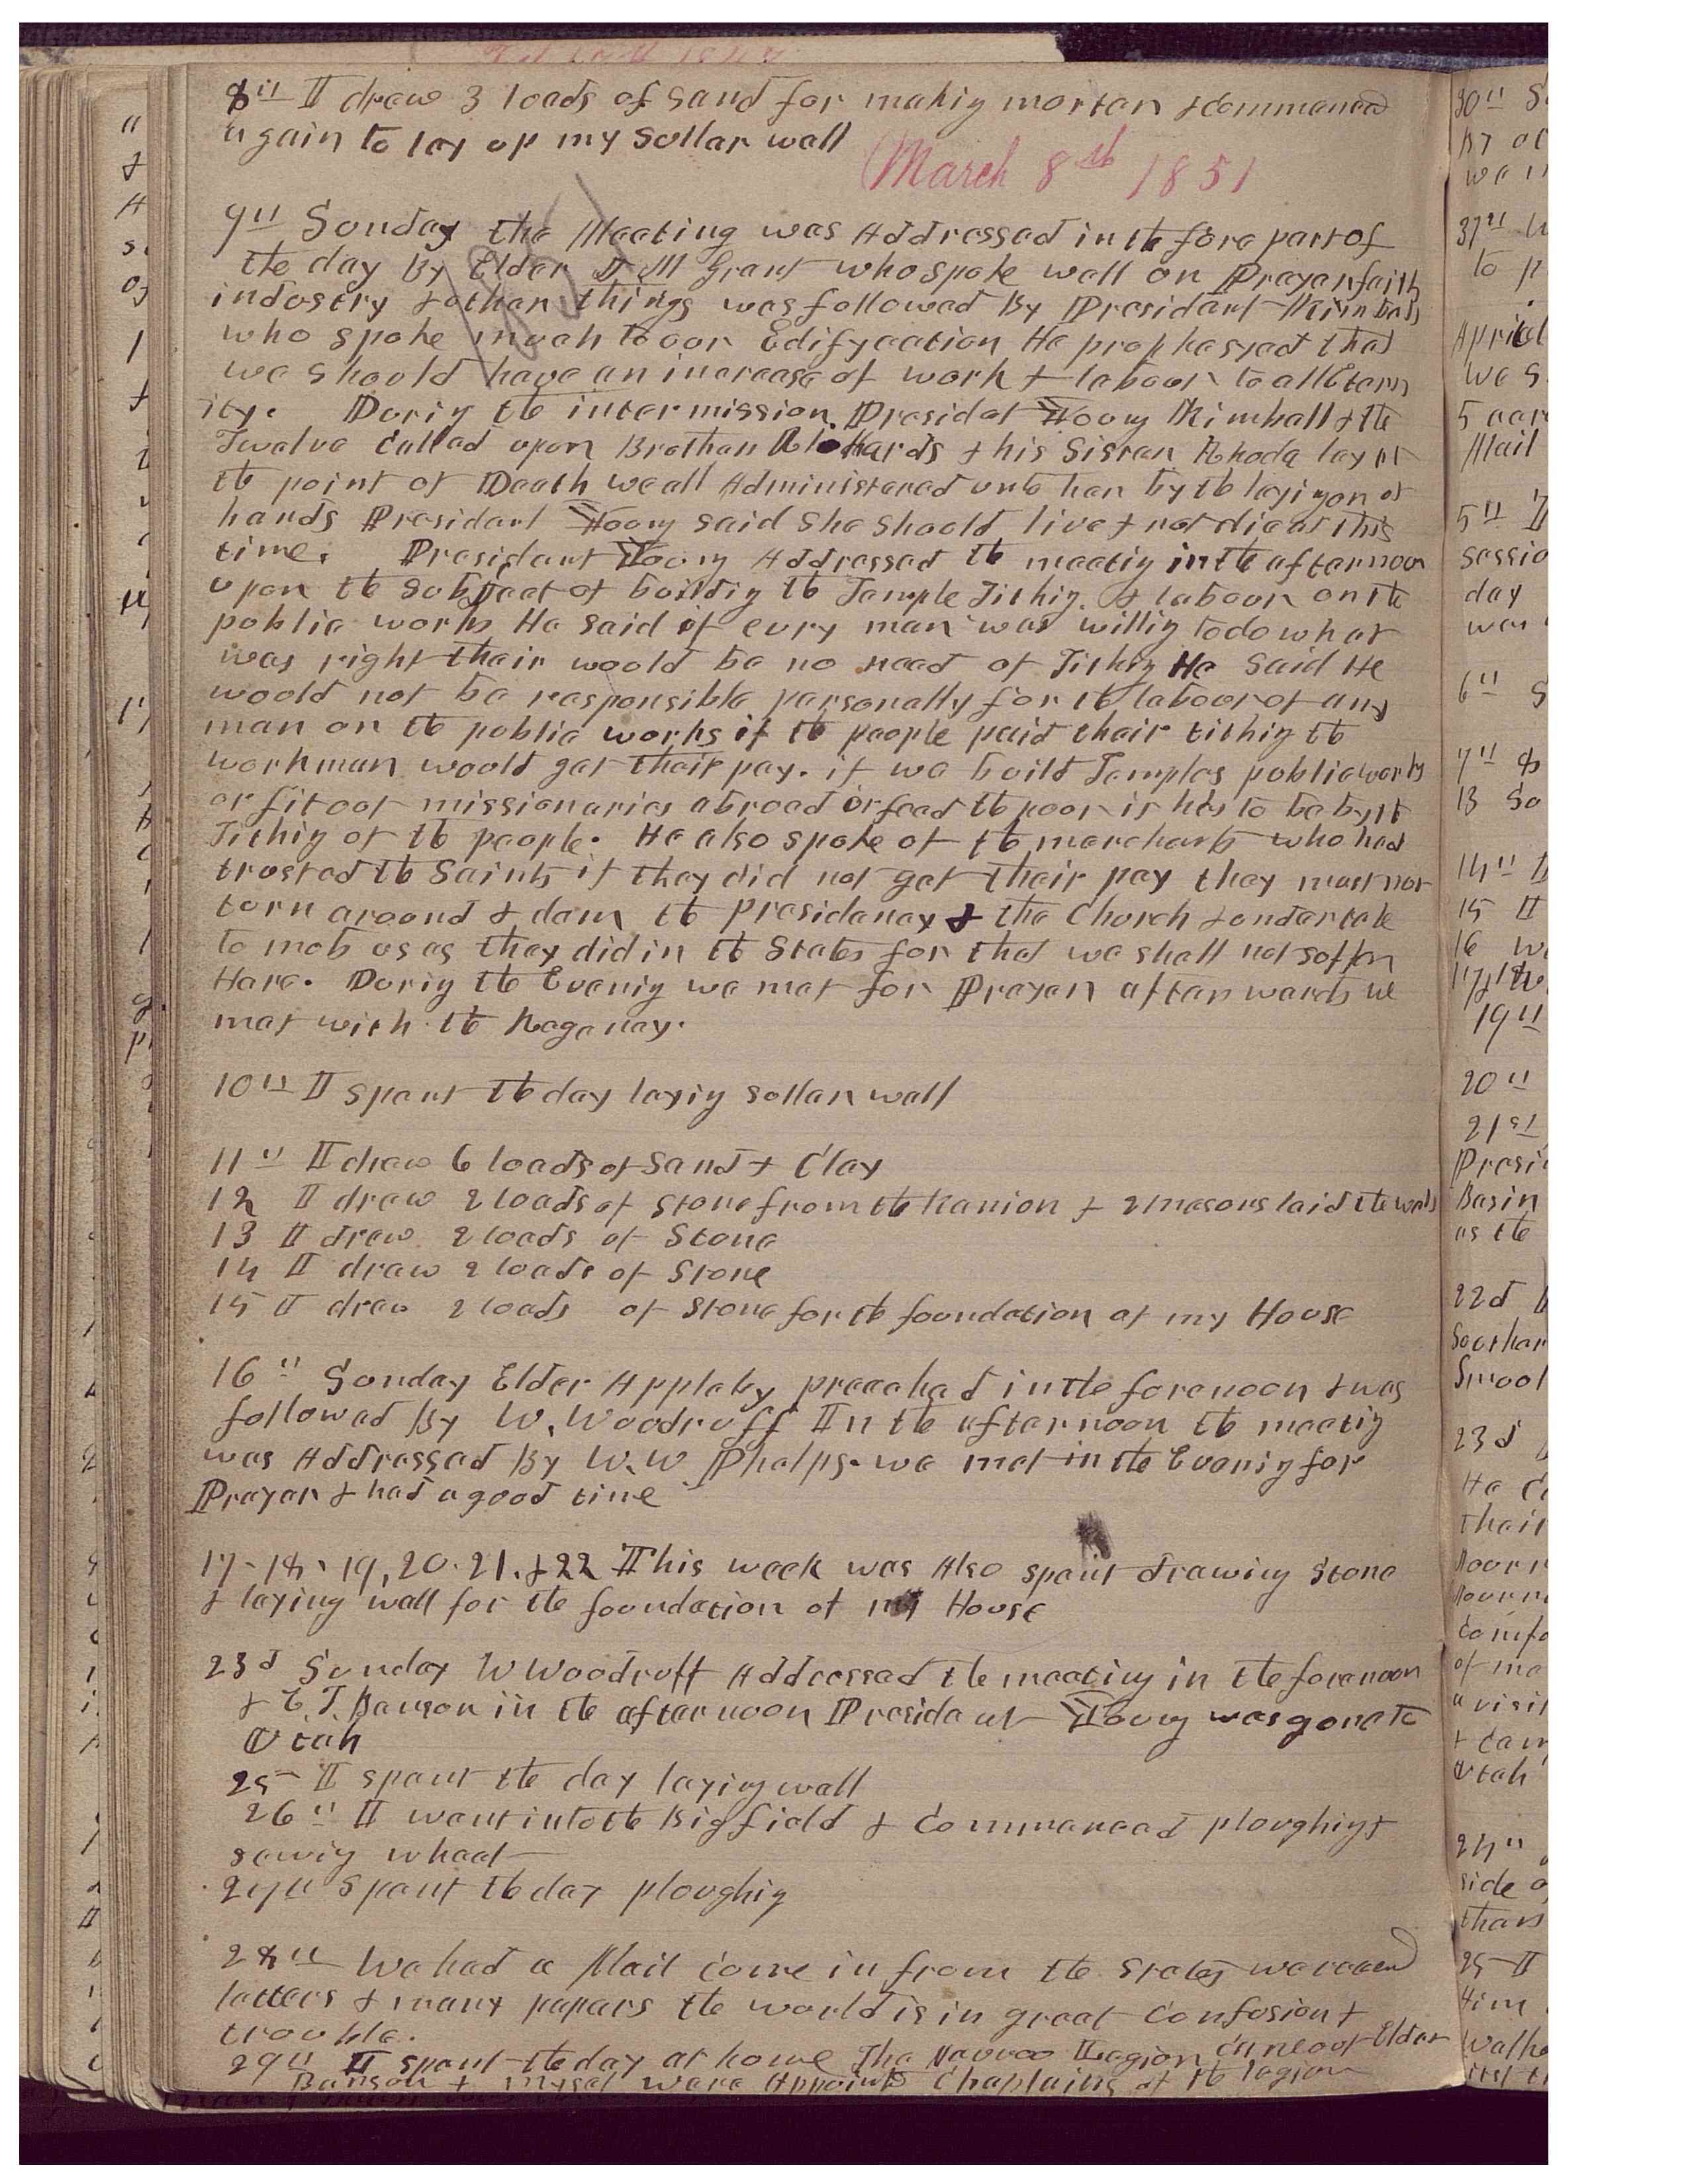 8th I drew 3 loads of Sand for makig mortar & Commenced
again to lay up my Sellar wall
March 8th 1851
9th Sunday the Meeting was Addressed in the fore part of
the day By Elder J M Grant who spoke well on Prayer faith
industry & other things was followed By President Kimball
who spoke much to our Edifycation He prophesyed that
we should have an increase of work & labour to all Etern
ity. Durig the intermission President Young Kimball & the
Twelve Called upon Brother Richards & his Sister Rhoda lay at
the point of Death we all Administered unto her by the layig on of
hands President Young said she should live & not die at this
time. President Young Addressed the meetig in the afternoon
upon the subject of buildig the Temple Tithig & labour on the
public works He said if evry man was willig to do what
was right their would be no need of Tithig He said He
would not be responsible personally for the labour of any
man on the public works if the people paid their tithig the
workman would get their pay. if we build Temples public works
or fit out missionaries abroad or feed the poor it has to be by the
Tithig of the people. He also spoke of the merchants who had
trusted the Saints if they did not get their pay they must not
turn around & dam the presidency & the Church & undertake
to mob us as they did in the States for that we shall not suffer
Here. Durig the Evenig we met for Prayer afterwards we
met with the Regency.
10th I spent the day layig sellar wall
11th I drew 6 loads of Sand & Clay
12 I drew 2 loads of stone from the Kanion & 2 masons laid the walls
13 I drew 2 loads of Stone
14 I drew 2 loads of Stone
15 I drew 2 loads of stone for the foundation of my House
16th Sunday Elder Appleby preached in the forenoon & was
followed By W. Woodruff In the afternoon the meetig
was Addressed By W. W. Phelps. we met in the Evenig for
Prayer & had a good time
17-18, 19, 20. 21. & 22 This week was Also spent drawing Stone
& laying wall for the foundation of my House
23d Sunday W Woodruff Addressed the meeting in the forenoon
& E. T. Benson in the afternoon President Young was gone to
Utah
25 I spent the day laying wall
26th I went into the Big field & Commenced ploughig &
sowig wheat
27th Spent the day ploughig
28th We had a Mail come in from the States we receied
letters & many papers the world is in great Confusion &
trouble.
29th I spent the day at home The Nauvoo Legion out Elder
Benson & myself were Appointd Chaplains of the legion